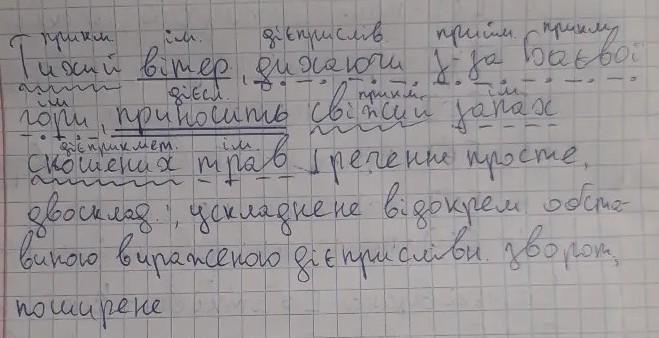 прикм. ім. дієприслів прийм. прикм.
Тихий вітер, дихаючи з-за баєвої
ім. дієсл. прикм. ім.
гори, приносить свіжий запах
дієприкмет. ім.
скошених трав. (речення просте,
двосклад., ускладнене відокрем обста-
виною вираженою дієприслівн. зворот,
поширене